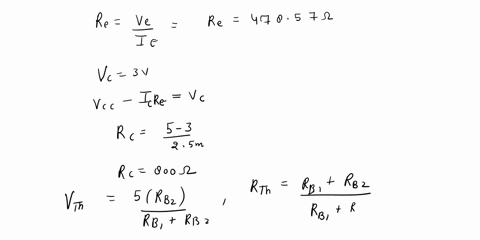 Re = Ve / IE = Re = 470.57Ω
Vc = 3V
Vcc - IcRe = Vc
Rc = 5-3 / 2.5m
Rc = 800Ω
VTh = 5(RB2) / RB1 + RB2 , RTh = RB1 + RB2 / RB1 + R